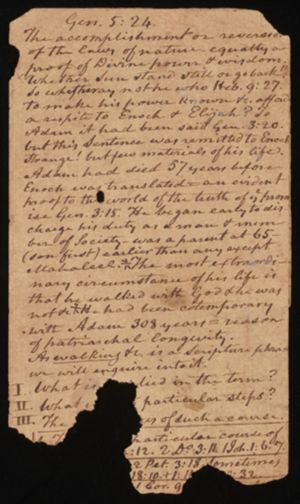 Gen. 5:24.
The accomplishment or reversion
of the laws of nature equally a
proof of Divine power & wisdom
Whether Sun stand still or go back
so why may not he who Heb. 9:27.
to make his power known &c. afford
a respite to Enoch & Elijah? To
Adam it had been said Gen. 3:20.
but this Sentence was remitted to Enoch
Strange! but few materials of his life.
Adam had died 57 years before
Enoch was translated - an evident
proof to the world of the truth of
Gen. 3:15. He began early to dis
charge his duty as a man & mem
ber of Society - was a parent at 65
(son first) earlier than any except
Mahaleel. The most extraordi
nary circumstance of his life is
that he walked with God & he was
not &c. He had been cotemporary
with Adam 308 years = reason
of patriarchal longevity.
As walking &c is a Scripture phrase
we will enquire into it.
I. What is in the term?
II. What particular steps?
III. The of such a course.
particular course of
:12. 2 3:11 Joh. 1:6.7.
2 Pet. 3:18. Sometimes
18:10+1
Cor. 9